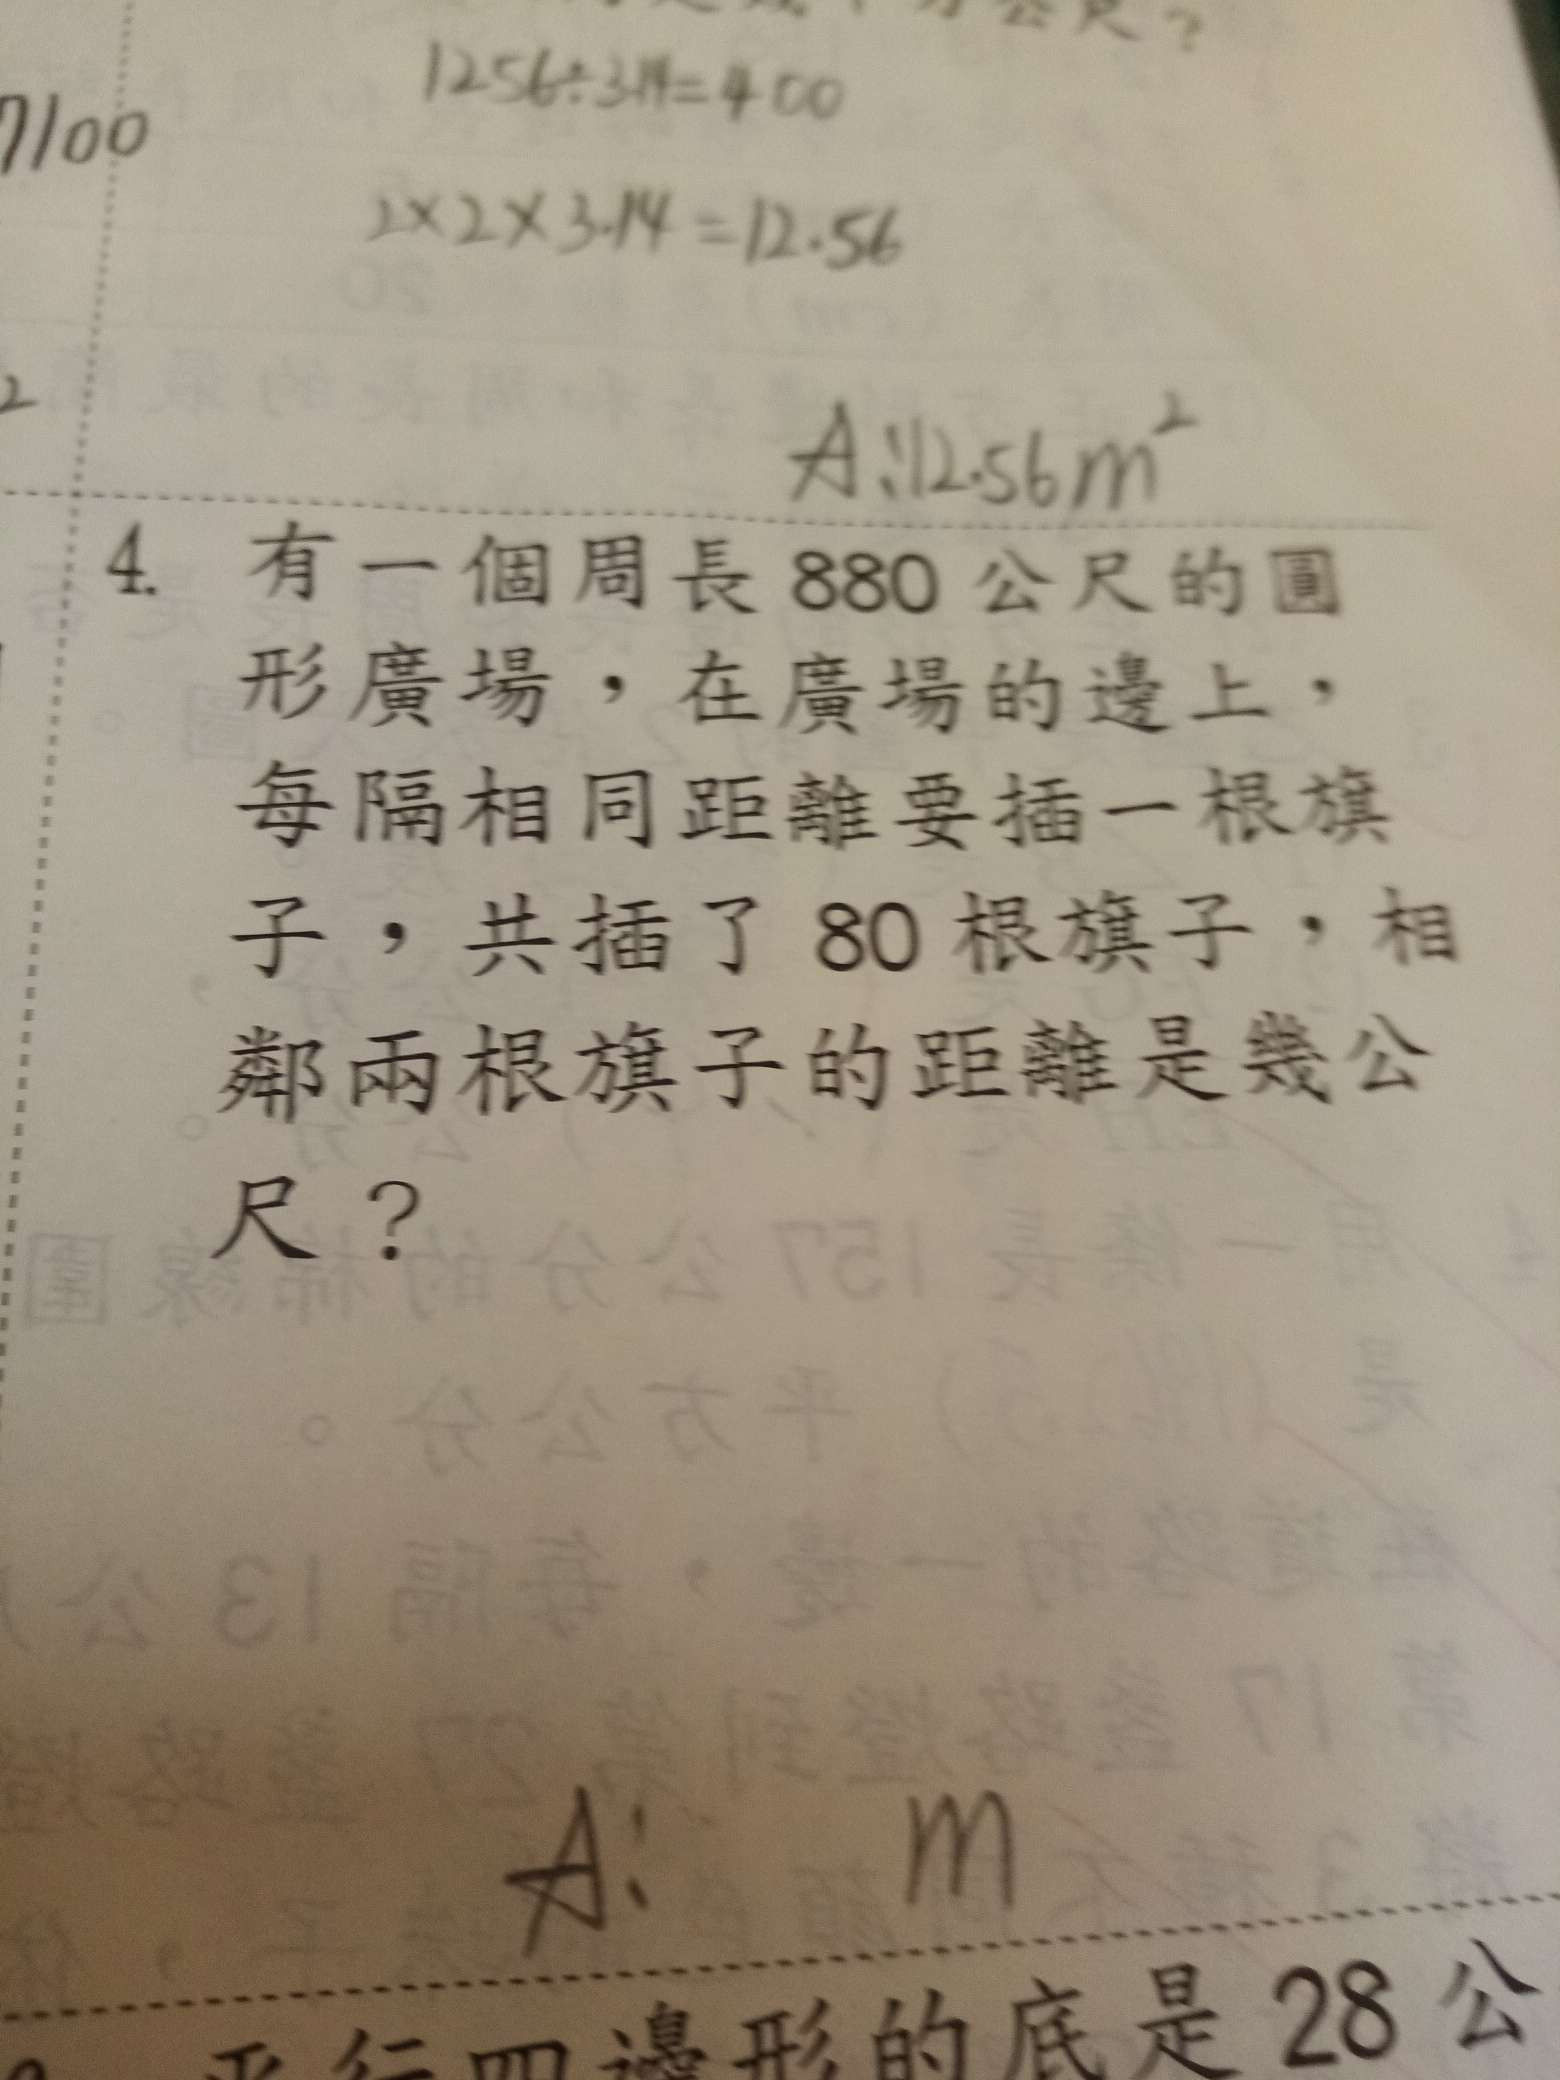 公尺？
1256÷3.14=400
7100
2×2×3.14=12.56
2
A:12.56m²
4. 有一個周長 880 公尺的圓
形廣場，在廣場的邊上，
每隔相同距離要插一根旗
子，共插了 80 根旗子，相
鄰兩根旗子的距離是幾公
尺？
A: m
平行四邊形的底是 28 公